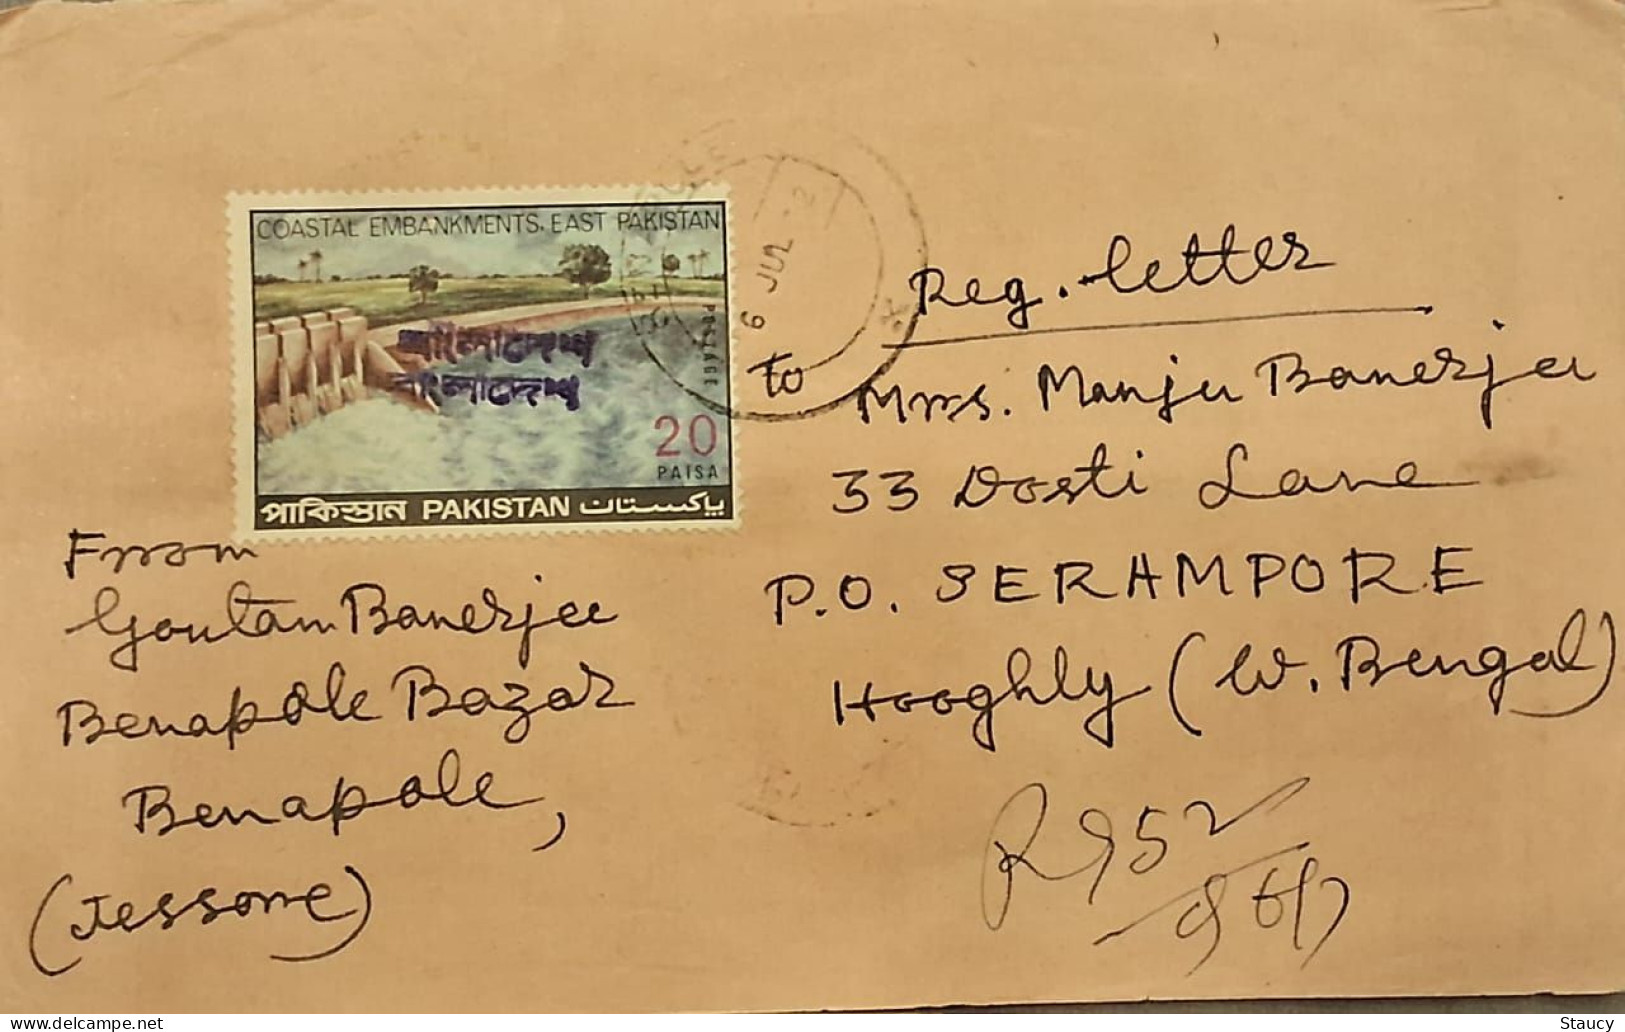 COASTAL EMBANKMENTS, EAST PAKISTAN
POSTAGE
বাংলাদেশ
বাংলাদেশ
20
PAISA
পাকিস্তান PAKISTAN پاکستان
6 JUL
Reg. letter
to
Mrs. Manju Banerjee
33 Dosti Lane
P.O. SERAMPORE
Hooghly (W. Bengal)
From
Goutam Banerjee
Benapole Bazar
Benapole,
(Jessore)
Staucy